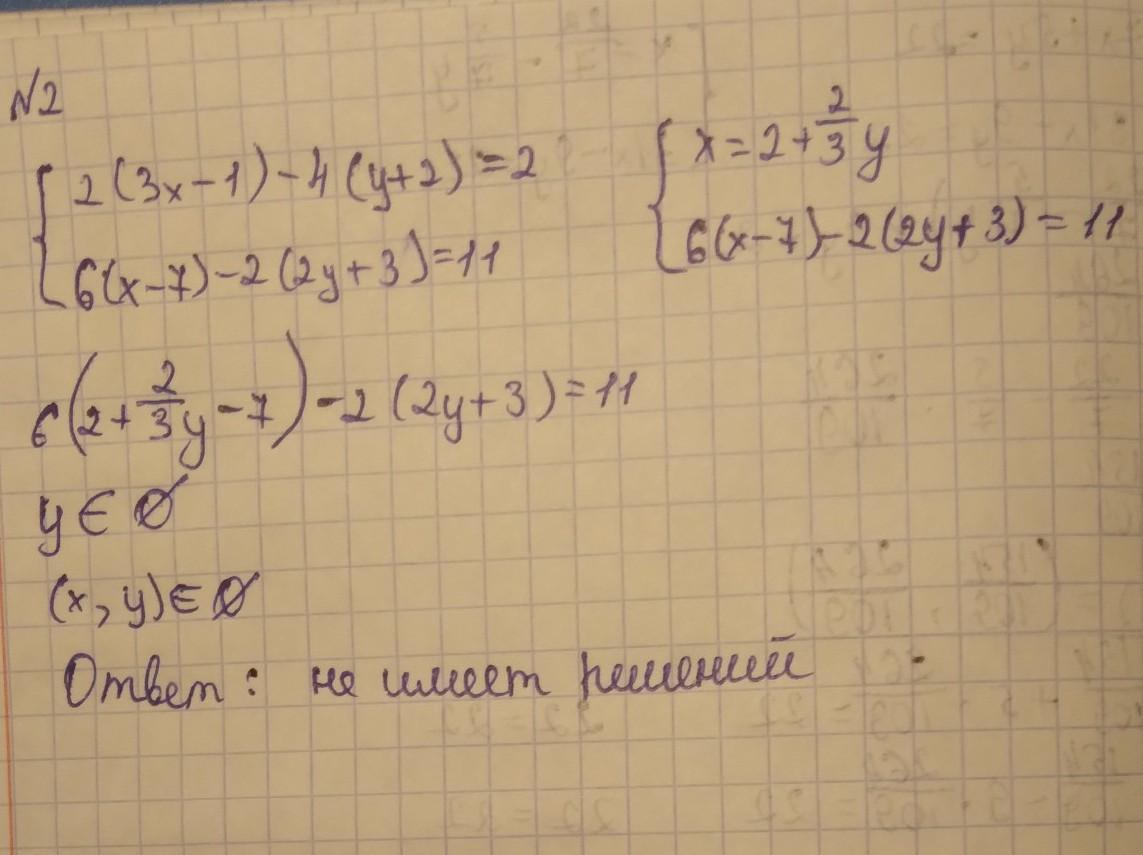 №2
{ 2(3x-1)-4(y+2)=2
6(x-7)-2(2y+3)=11
{ x=2+2/3y
6(x-7)-2(2y+3)=11
6(2+2/3y-7)-2(2y+3)=11
y∈∅
(x,y)∈∅
Ответ: не имеет решений